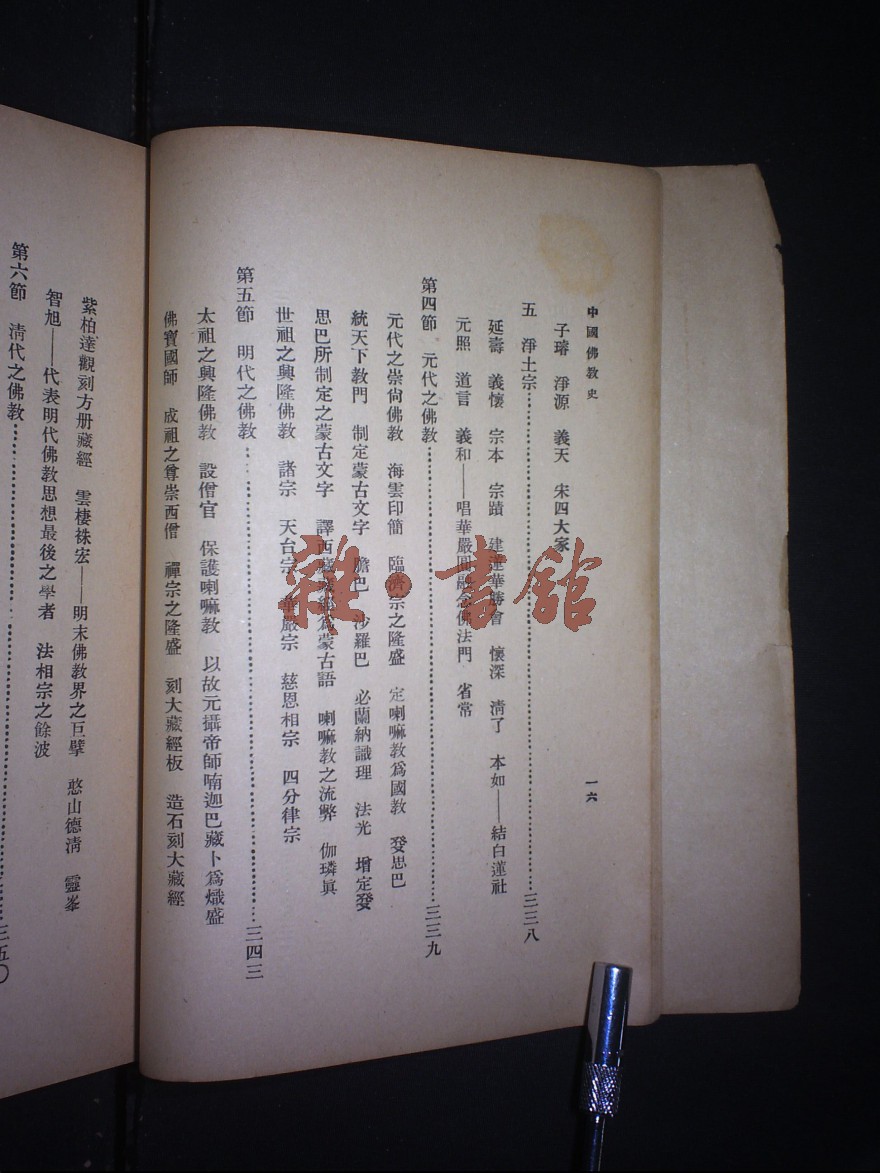 中國佛教史
一六
子璿 淨源 義天 宋四大家
五 淨土宗…………三三八
延壽 義懷 宗本 宗賾 建蓮華勝會 懷深 淸了 本如——結白蓮社
元照 道言 義和——唱華嚴圓融念佛法門 省常
第四節 元代之佛教…………三三九
元代之崇尙佛教 海雲印簡 臨濟宗之隆盛 定喇嘛教爲國教 發思巴
統天下教門 制定蒙古文字 膽巴 沙羅巴 必蘭納識理 法光 增定發
思巴所制定之蒙古文字 譯西藏藏經爲蒙古語 喇嘛教之流弊 伽璘眞
世祖之興隆佛教 諸宗 天台宗 華嚴宗 慈恩相宗 四分律宗
第五節 明代之佛教…………三四三
太祖之興隆佛教 設僧官 保護喇嘛教 以故元攝帝師喃迦巴藏卜爲熾盛
佛寶國師 成祖之尊崇西僧 禪宗之隆盛 刻大藏經板 造石刻大藏經
紫柏達觀刻方册藏經 雲棲袾宏——明末佛教界之巨擘 憨山德淸 靈峯
智旭——代表明代佛教思想最後之學者 法相宗之餘波
第六節 淸代之佛教…………三五〇
雜·書館